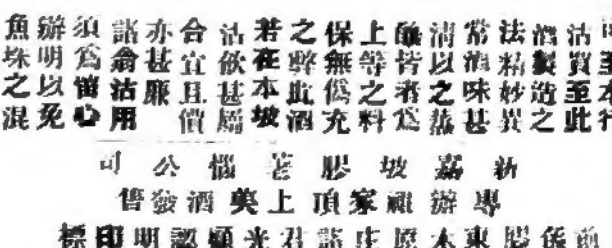 至本行
沽買至此
酒製造之
法精妙異
常酒味甚
清以之蒸
釀皆爲
上等之料
保無僞充
之弊此酒
若在本坡
沽飲甚屬
合宜且價
亦甚廉
諸翁沽用
須爲留心
辦明以免
魚珠之混
新嘉坡膠荖惱公司
專辦祖家頂上美酒發售
東木原庄諸君光顧認明印標